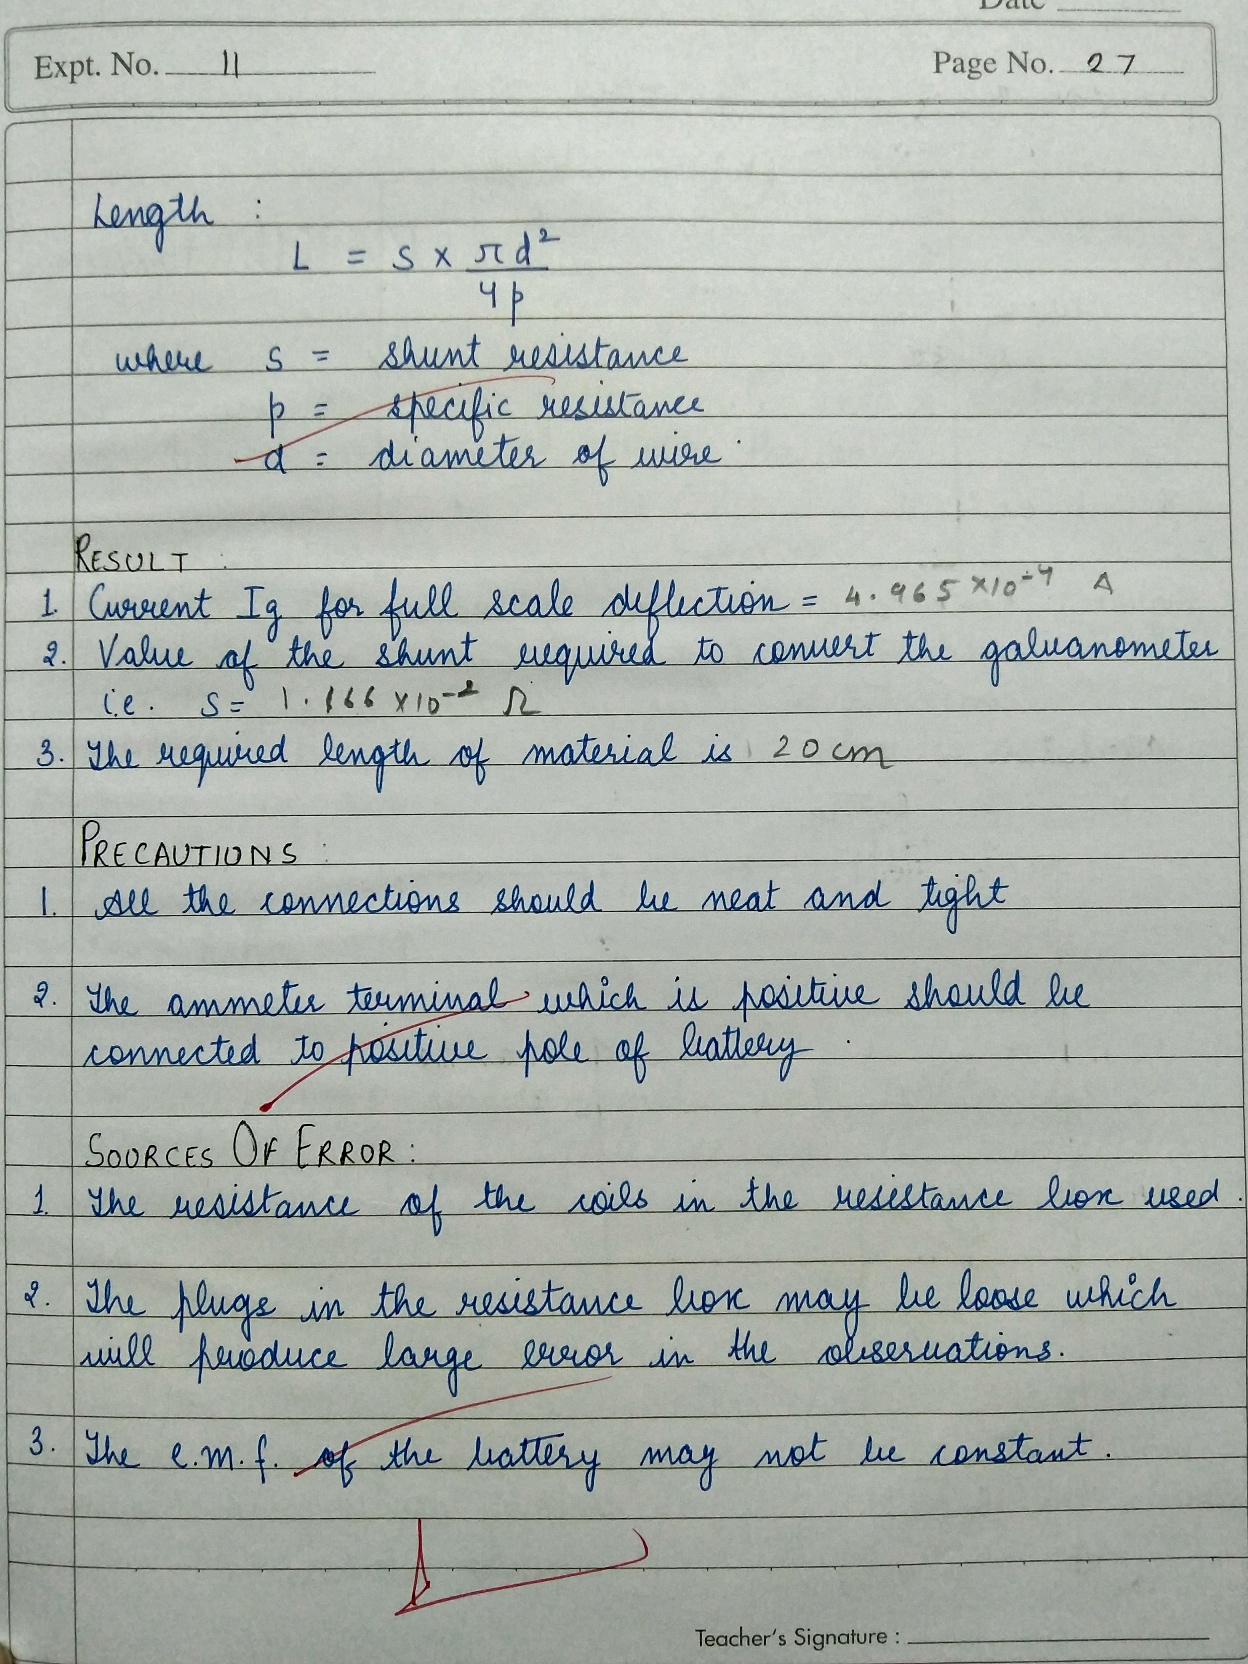 Date
Expt. No. 11
Page No. 27
Length :
L = S × πd²
4ρ
where S = shunt resistance
ρ = specific resistance
d = diameter of wire.
RESULT :
1. Current Ig for full scale deflection = 4.965 ×10⁻⁴ A
2. Value of the shunt required to convert the galvanometer
i.e. S = 1.166 ×10⁻² Ω
3. The required length of material is 20 cm
PRECAUTIONS :
1. All the connections should be neat and tight
2. The ammeter terminal which is positive should be
connected to positive pole of battery.
SOURCES OF ERROR :
1. The resistance of the coils in the resistance box used.
2. The plugs in the resistance box may be loose which
will produce large error in the observations.
3. The e.m.f. of the battery may not be constant.
Teacher's Signature :